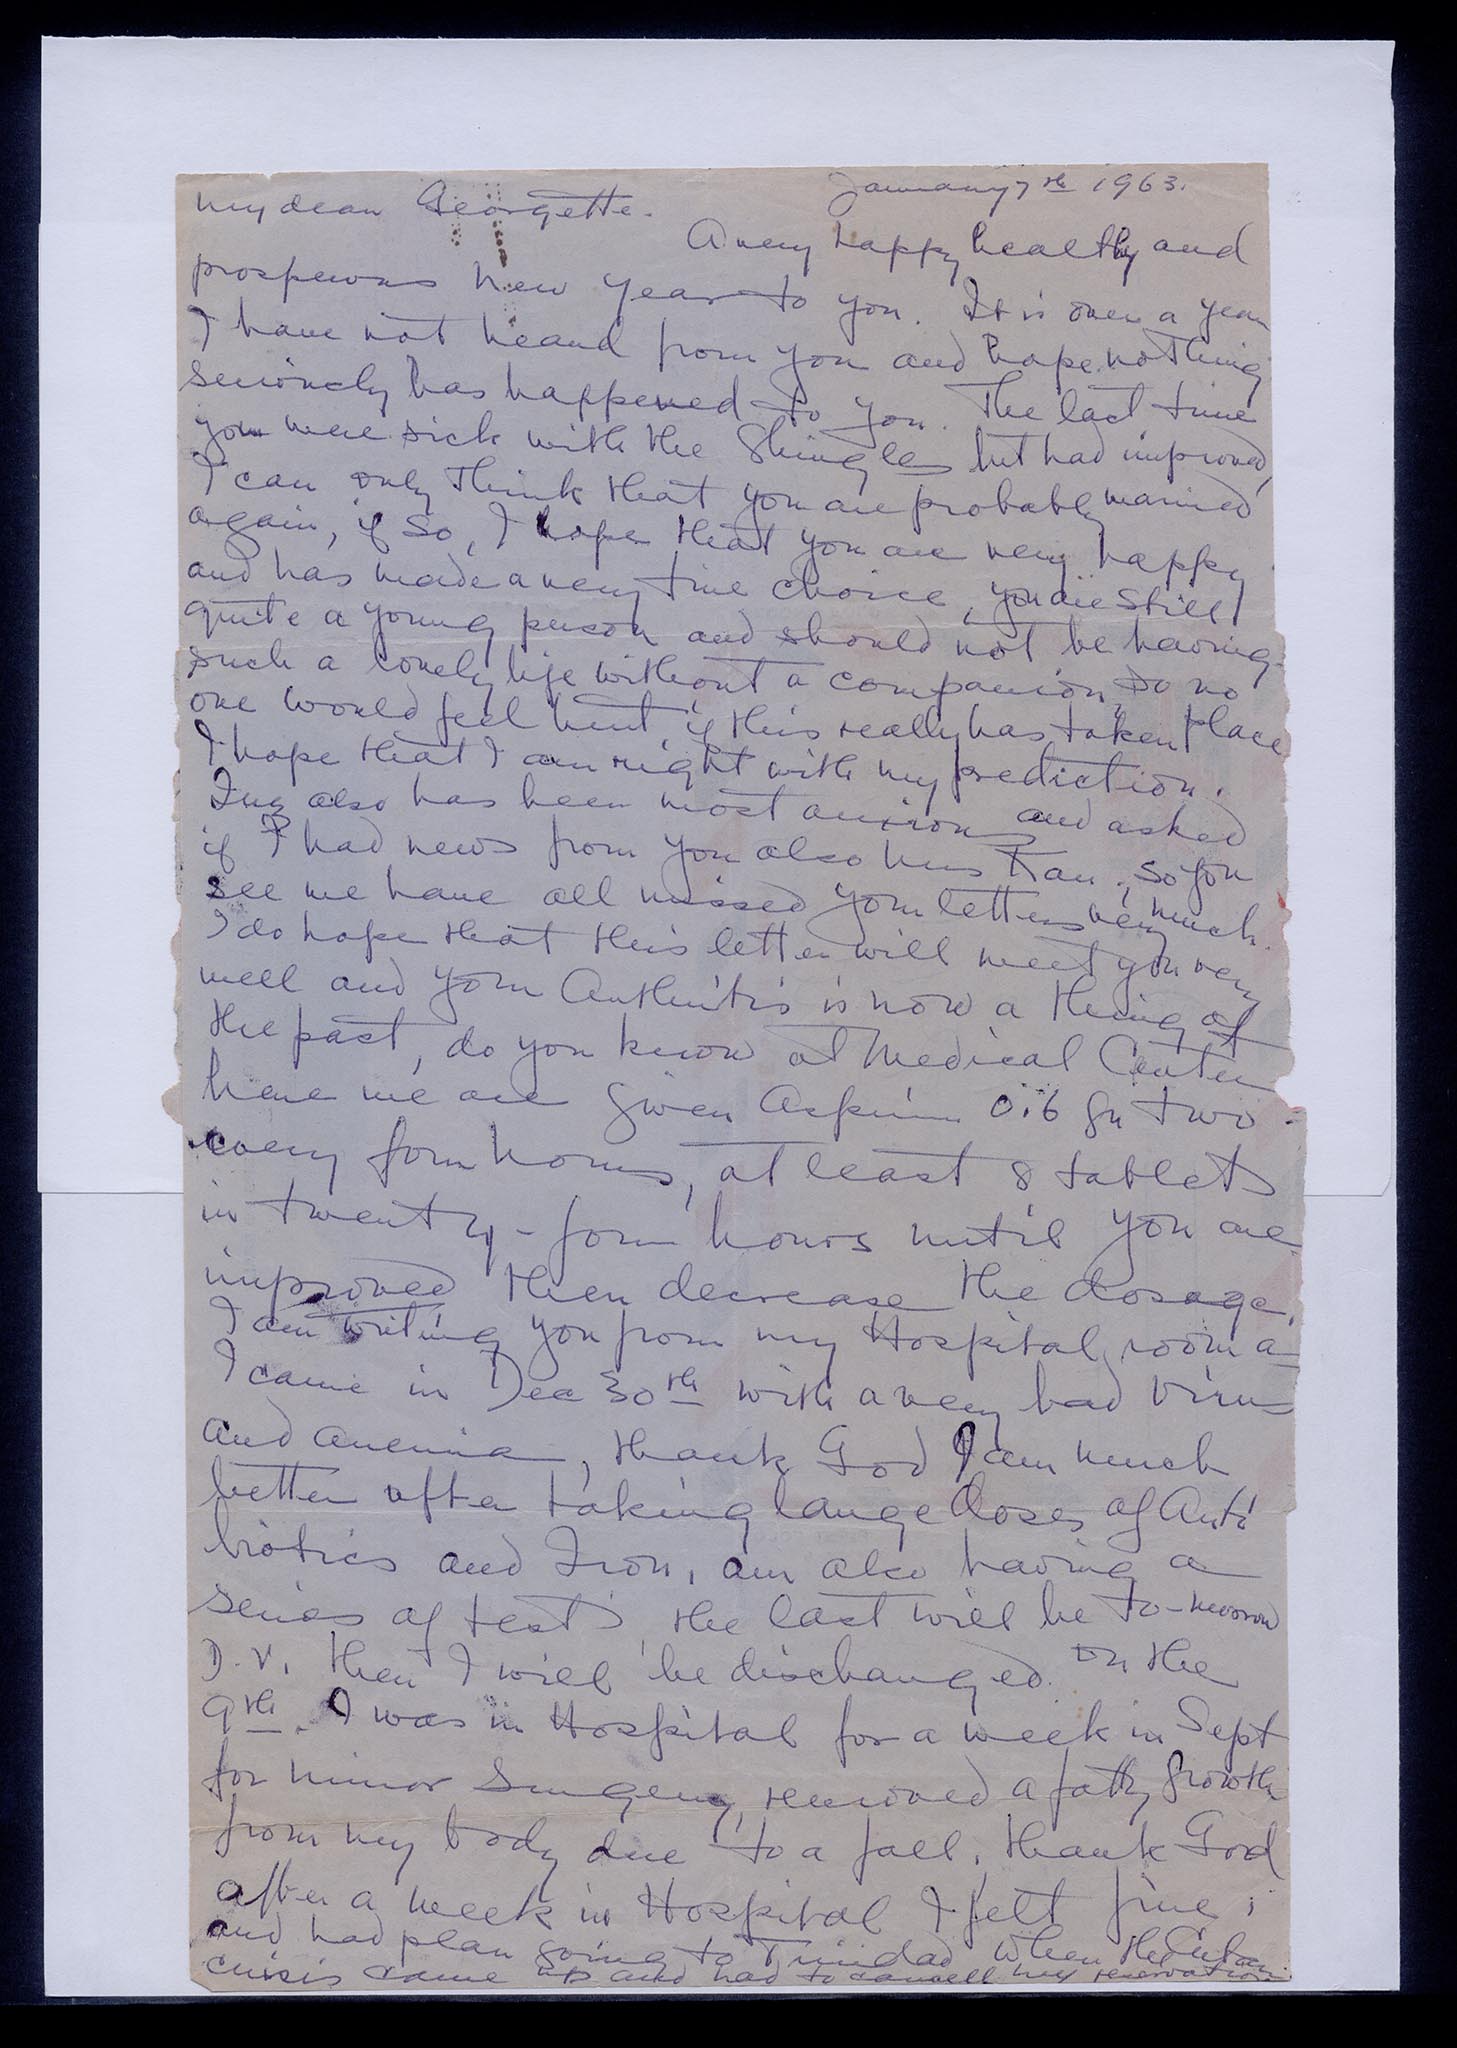 January 7th 1963.
My dear Georgette.
A very happy healthy and
prosperous New Year to you. It is over a year
I have not heard from you and hope nothing
seriously has happened to you. The last time
you were sick with the Shingles but had improved,
I can only think that you are probably married
again, if so, I hope that you are very happy
and has made a very fine choice, you are still
quite a young person and should not be having
such a lonely life without a companion, so no
one would feel hurt if this really has taken place
I hope that I am right with my prediction.
also has been most anxious and asked
if I had news from you also Mrs , so you
see we have all missed your letters very much.
I do hope that this letter will meet you very
well and your Arthritis is now a thing of
the past, do you know at Medical Center
here we are given Aspirin 0.6 gr two
every four hours, at least 8 tablets
in twenty-four hours until you are
improved then decrease the dosage.
I am writing you from my Hospital room a
I came in Dec 30th with a very bad Virus
and anemia, thank God I am much
better after taking large doses of Anti
biotics and Iron, am also having a
series of tests, the last will be to-morrow
D.V. then I will be discharged on the
9th. I was in Hospital for a week in Sept
for minor Surgery, removed a fatty growth
from my body due to a fall, thank God
after a week in Hospital I felt fine,
and had plan going to Trinidad when the Cuban
crisis came up and had to cancell my reservation